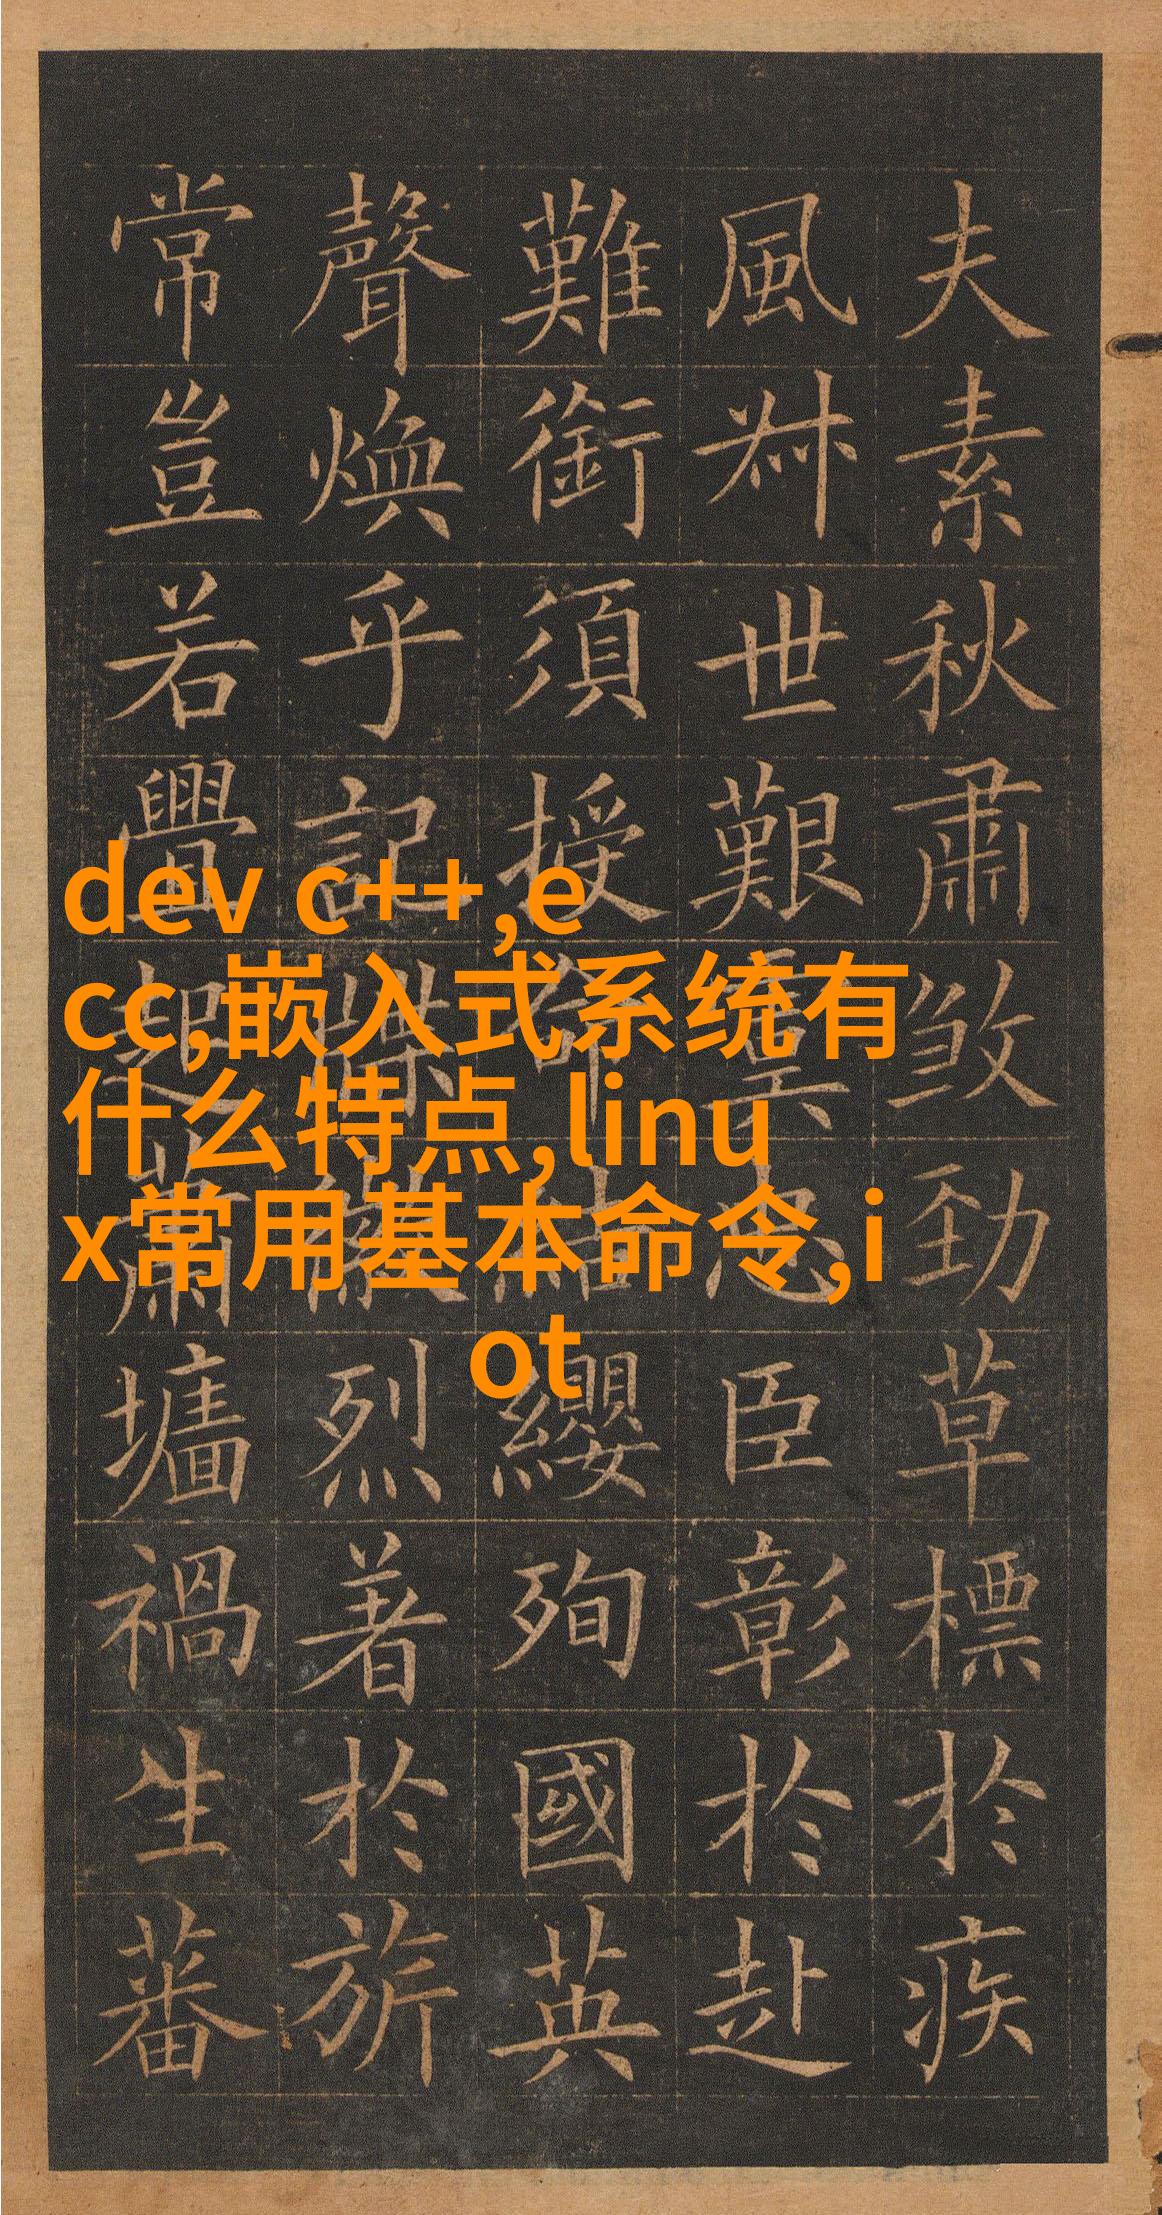 夫素秋肅煞勁草標於疾
風叔世艱虞忠臣彰於赴
難銜須授命結纓殉國英
聲煥乎記牒徽烈著於旂
常豈若舋起蕭墻禍生蕃
dev c++,e
cc,嵌入式系统有
什么特点,linu
x常用基本命令,i
ot